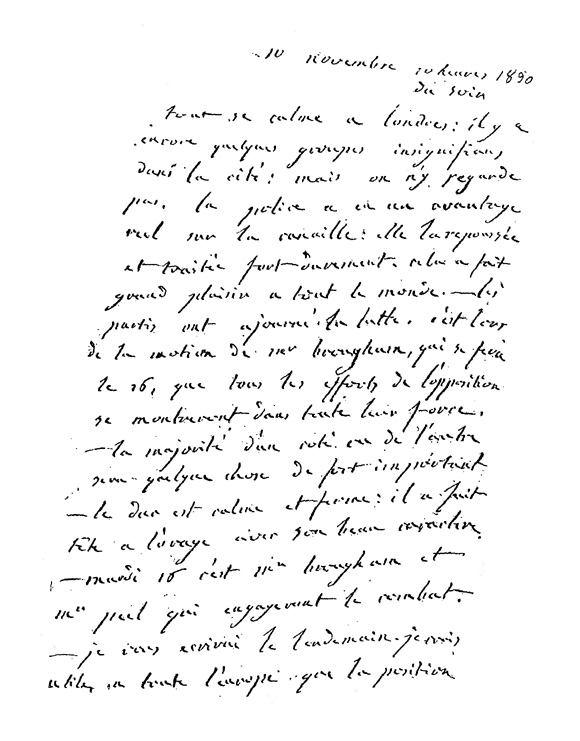 10 novembre 10 heures 1830
du soir
tout se calme a londres : il y a
encore quelques groupes insignifians
dans la cité : mais on n'y regarde
pas. la police a eu un avantage
réel sur la canaille : elle l'a repoussée
et traitée fort durement. cela a fait
grand plaisir a tout le monde. — les
partis ont ajourné la lutte. c'est lors
de la motion de mr brougham, qui se fera
le 16, que tous les efforts de l'opposition
se montreront dans toute leur force.
— la majorité d'un coté ou de l'autre
sera quelque chose de fort important
— le duc est calme et ferme : il a fait
tête a l'orage avec son beau caractère.
— mardi 16 c'est mr brougham et
mr peel qui engageront le combat.
— je vous ecrirai le lendemain. je crois
utile, a toute l'europe que la position